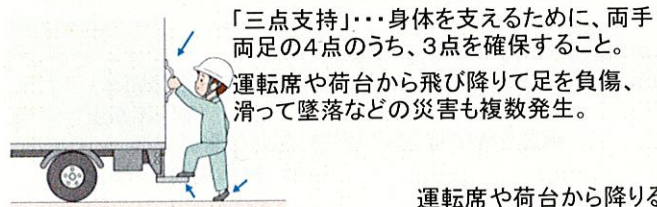 「三点支持」･･･身体を支えるために、両手
両足の４点のうち、３点を確保すること。
運転席や荷台から飛び降りて足を負傷、
滑って墜落などの災害も複数発生。
運転席や荷台から降りる